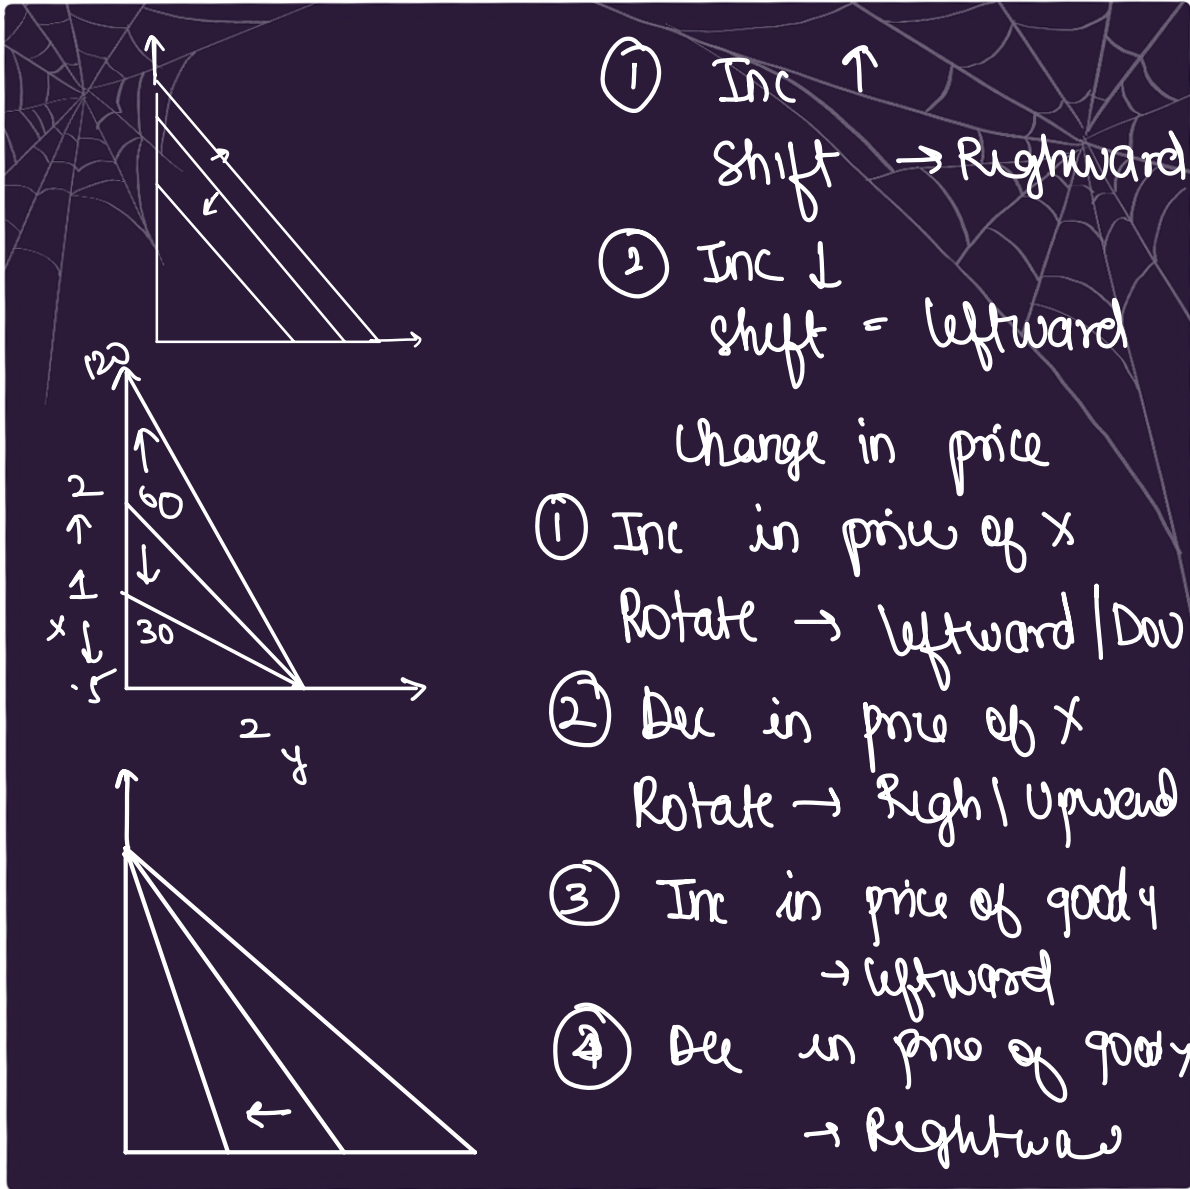 ① Inc ↑
Shift → Righward
② Inc ↓
Shift = leftward
120
60
2
↑
1
x ↓
.5
30
2
y
Change in price
① Inc in price of X
Rotate → leftward | Dow
② Dec in price of X
Rotate → Righ | Upward
③ Inc in price of good y
→ leftward
④ Dec in price of good y
→ Rightwa